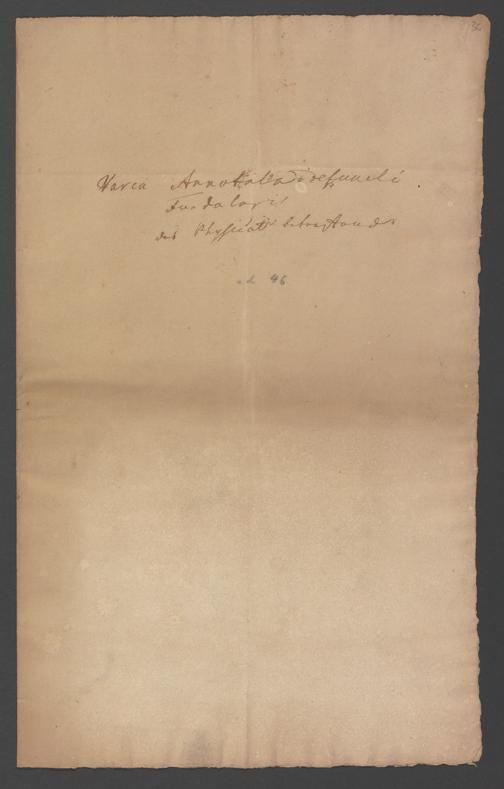 36
Varia Annotata defuncti
Fundatoris
das Physicat betreffende
ad 46